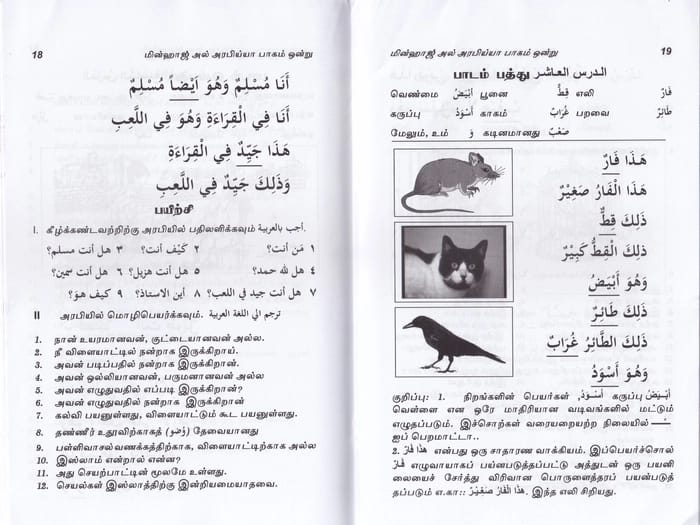 18 மின்ஹாஜ் அல் அரபிய்யா பாகம் ஒன்று
أَنَا مُسْلِمٌ وَهُوَ أَيْضاً مُسْلِمٌ
أَنَا فِي الْقِرَاءَةِ وَهُوَ فِي اللَّعِبِ
هَذَا جَيِّدٌ فِي الْقِرَاءَةِ
وَذَلِكَ جَيِّدٌ فِي اللَّعِبِ
பயிற்சி
I. கீழ்க்கண்டவற்றிற்கு அரபியில் பதிலளிக்கவும் أجب بالعربية.
١ مَن أنت؟ ٢ كَيْف أنت؟ ٣ هل أنت مسلم؟
٤ هل لله حمد؟ ٥ هل أنت هزيل؟ ٦ هل أنت سمين؟
٧ هل أنت جيد في اللعب؟ ٨ أين الاستاذ؟ ٩ كيف هو؟
II அரபியில் மொழிபெயர்க்கவும். ترجم الي اللغة العربية
1. நான் உயரமானவன், குட்டையானவன் அல்ல.
2. நீ விளையாட்டில் நன்றாக இருக்கிறாய்.
3. அவன் படிப்பதில் நன்றாக இருக்கிறான்.
4. அவன் ஒல்லியானவன், பருமனானவன் அல்ல
5. அவன் எழுதுவதில் எப்படி இருக்கிறான்?
6. அவன் எழுதுவதில் நன்றாக இருக்கிறான்
7. கல்வி பயனுள்ளது, விளையாட்டும் கூட பயனுள்ளது.
8. தண்ணீர் உதுவிற்காகத் (وُضُوْ) தேவையானது
9. பள்ளிவாசல்வணக்கத்திற்காக, விளையாட்டிற்காக அல்ல
10. இஸ்லாம் என்றால் என்ன?
11. அது செயற்பாட்டின் மூலமே உள்ளது.
12. செயல்கள் இஸ்லாத்திற்கு இன்றியமையாதவை.
மின்ஹாஜ் அல் அரபிய்யா பாகம் ஒன்று 19
பாடம் பத்து الدرس العاشر
வெண்மை أَبْيَضُ பூனை قِطٌّ எலி فَارٌ
கருப்பு أَسْوَدُ காகம் غُرَابٌ பறவை طَائِرٌ
மேலும், உம் وَ கடினமானது صَعْبٌ
هَذَا فَارٌ
هَذَا الْفَارُ صَغِيْرٌ
ذَلِكَ قِطٌّ
ذلِكَ الْقِطُّ كَبِيْرٌ
وَهُوَ أَبْيَضُ
ذَلِكَ طَائِرٌ
ذَلِكَ الطَّائِرُ غُرَابٌ
وَهُوَ أَسْوَدُ
குறிப்பு: 1. நிறங்களின் பெயர்கள் أَسْوَدُ, கருப்பு أَبْيَضُ
வெள்ளை என ஒரே மாதிரியான வடிவங்களில் மட்டும்
எழுதப்படும். இச்சொற்கள் வரையறையற்ற நிலையில் —
ஐப் பெறமாட்டா..
2. هذَا فَارٌ என்பது ஒரு சாதாரண வாக்கியம். இப்பெயர்ச்சொல்
فَارٌ எழுவாயாகப் பயன்படுத்தப்பட்டு அத்துடன் ஒரு பயனி
லையைச் சேர்த்து விரிவான பொருளைத்தரப் பயன்படுத்
தப்படும் எ.கா:: هَذَا الْفَارُ صَغِيْرٌ. இந்த எலி சிறியது.